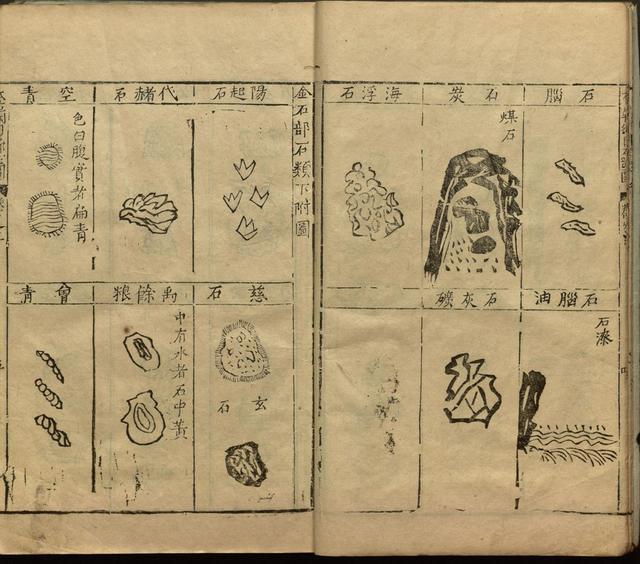 石腦
石炭
煤石
海浮石
石腦油
石漆
石灰礦
金石部石類下附圖
陽起石
代赭石
空青
色白腹實者扁青
慈石
玄石
禹餘粮
中有水者石中黃
曾青